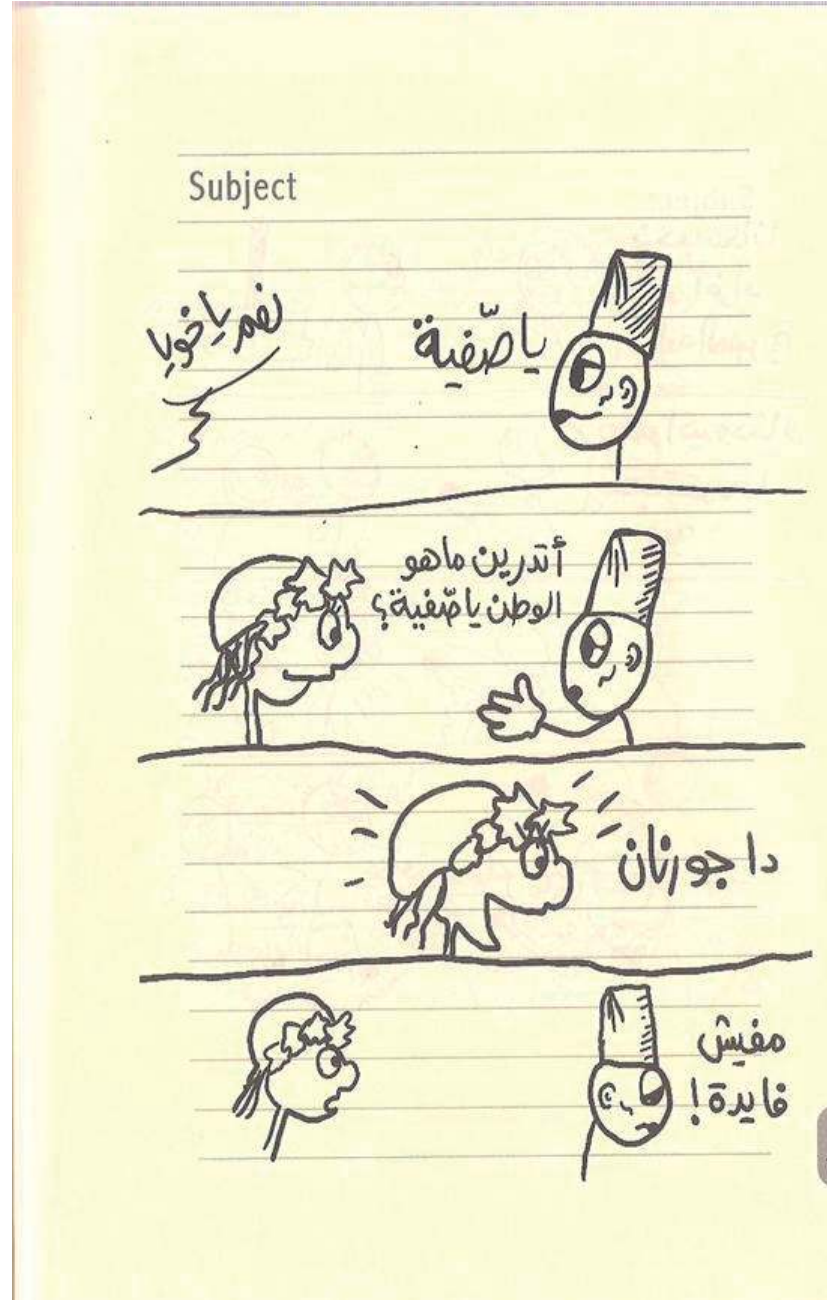 Subject
يا صّفية
نعم يا خويا
أتدرين ماهو
الوطن يا صّفية؟
دا جورنان
مفيش
فايدة!